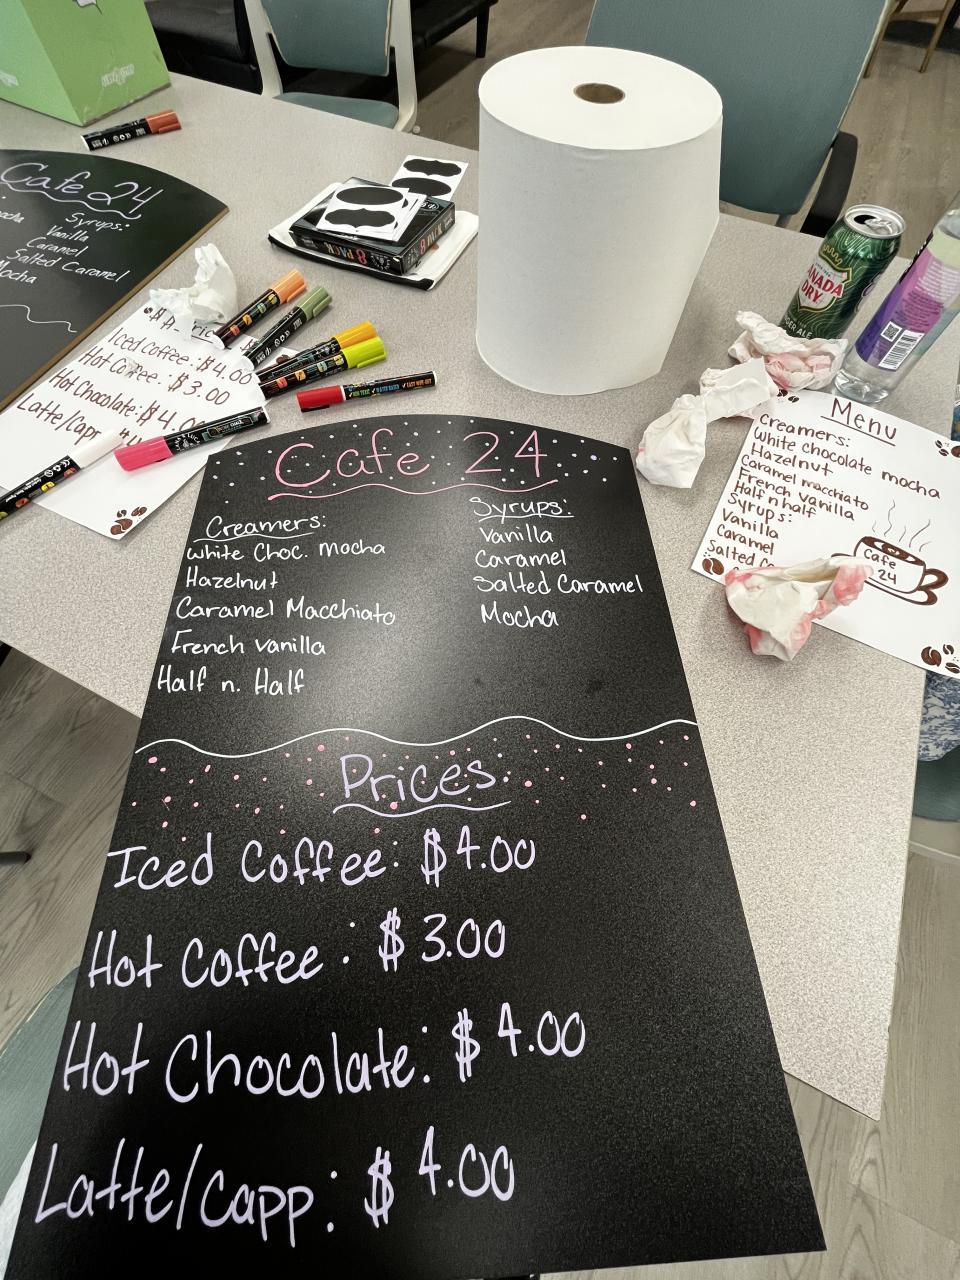 Cafe 24
Creamers:
White Choc. Mocha
Hazelnut
Caramel Macchiato
French vanilla
Half n. Half
Syrups:
Vanilla
Caramel
Salted Caramel
Mocha
Prices
Iced Coffee: $4.00
Hot Coffee: $3.00
Hot Chocolate: $4.00
Latte/Capp: $4.00
Cafe 24
Syrups:
Vanilla
Caramel
Salted Caramel
Mocha
Iced Coffee: $4.00
Hot Coffee: $3.00
Hot Chocolate: $4.0
Latte/Capp
Menu
Creamers:
White chocolate mocha
Hazelnut
Caramel macchiato
French Vanilla
Half n half
Syrups:
Vanilla
Caramel
Salted
Cafe
24
CANADA
DRY
8 PACK